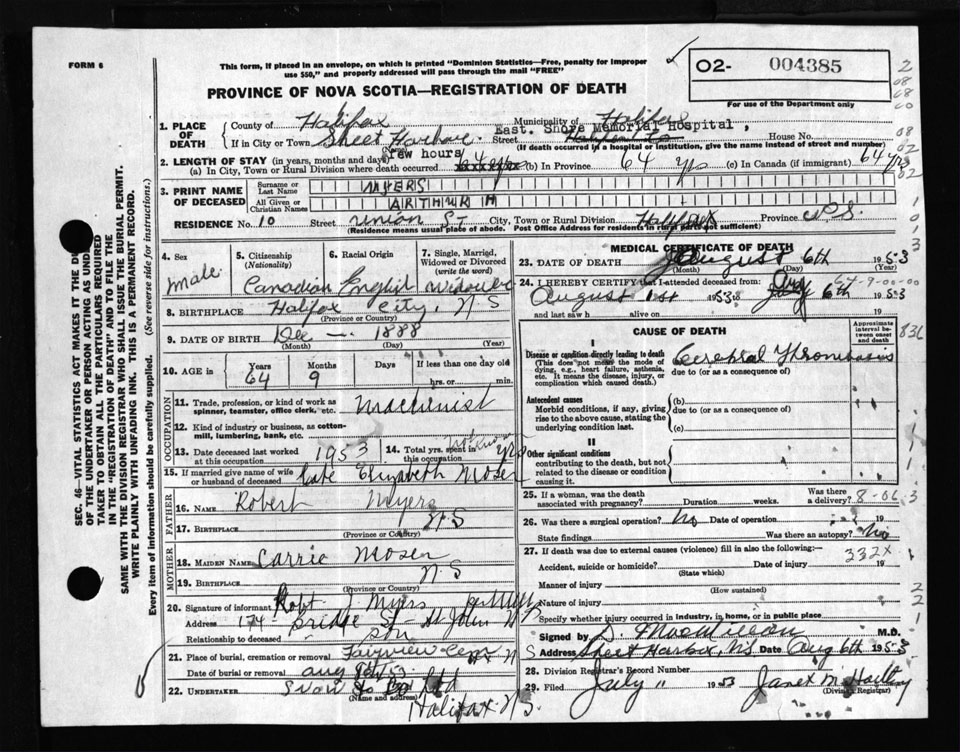 FORM 6
This form, if placed in an envelope, on which is printed "Dominion Statistics—Free, penalty for improper
use $50," and properly addressed will pass through the mail "FREE"
PROVINCE OF NOVA SCOTIA—REGISTRATION OF DEATH
O2- 004385
For use of the Department only
1. PLACE OF DEATH
County of Halifax Municipality of Halifax
East. Shore Memorial Hospital,
If in City or Town Sheet Harbour. Street House No.
(Name) (If death occurred in a hospital or institution, give the name instead of street and number)
2. LENGTH OF STAY (in years, months and days) few hours
(a) In City, Town or Rural Division where death occurred (b) In Province 64 yrs (c) In Canada (if immigrant) 64 yrs
3. PRINT NAME OF DECEASED
Surname or Last Name MYERS
All Given or Christian Names ARTHUR H
RESIDENCE No. 10 Street Union St City, Town or Rural Division Halifax Province N.S.
(Residence means usual place of abode. Post Office Address for residents in rural parts not sufficient)
4. Sex male
5. Citizenship (Nationality) Canadian
6. Racial Origin English
7. Single, Married, Widowed or Divorced (write the word) Widower
8. BIRTHPLACE Halifax City, N S
(Province or Country)
9. DATE OF BIRTH Dec — 1888
(Month) (Day) (Year)
10. AGE in Years 64 Months 9 Days If less than one day old hrs. or min.
OCCUPATION
11. Trade, profession, or kind of work as spinner, teamster, office clerk, etc. Machinist
12. Kind of industry or business, as cotton-mill, lumbering, bank, etc.
13. Date deceased last worked at this occupation 1953
14. Total yrs. spent in this occupation Not known yrs
15. If married give name of wife or husband of deceased Kate Elizabeth Moser
FATHER
16. NAME Robert Myers
17. BIRTHPLACE N S
(Province or Country)
MOTHER
18. MAIDEN NAME Carrie Moser
19. BIRTHPLACE N S
(Province or Country)
20. Signature of informant Robt J Myers
Address 174 Bridge St St John N B
Relationship to deceased son
21. Place of burial, cremation or removal Fairview Cem
Date of burial or removal Aug 53
22. UNDERTAKER Snow & Co Ltd
(Name and address)
Halifax N.S.
MEDICAL CERTIFICATE OF DEATH
23. DATE OF DEATH August 6th 1953
(Month) (Day) (Year)
24. I HEREBY CERTIFY that I attended deceased from:
August 1st 1953 to 6th 1953
and last saw h alive on 19
CAUSE OF DEATH
Approximate interval between onset and death
I
Disease or condition directly leading to death
(This does not mean the mode of dying, e.g., heart failure, asthenia, etc. It means the disease, injury, or complication which caused death.)
Cerebral Thrombosis
due to (or as a consequence of)
Antecedent causes
Morbid conditions, if any, giving rise to the above cause, stating the underlying condition last.
(b)
due to (or as a consequence of)
(c)
II
Other significant conditions
contributing to the death, but not related to the disease or condition causing it.
25. If a woman, was the death associated with pregnancy? Duration weeks. Was there a delivery?
8-06 3
26. Was there a surgical operation? No Date of operation 19
State findings Was there an autopsy? No
27. If death was due to external causes (violence) fill in also the following:—
332X
Accident, suicide or homicide? Date of injury 19
(State which)
Manner of injury
(How sustained)
Nature of injury
Specify whether injury occurred in industry, in home, or in public place
Signed by M.D.
Address Sheet Harbor, NS Date Aug 6th 1953
28. Division Registrar's Record Number
29. Filed July 11 1953 Janet M.
(Division Registrar)
SEC. 46—VITAL STATISTICS ACT MAKES IT THE DUTY
OF THE UNDERTAKER OR PERSON ACTING AS UNDERTAKER
TO OBTAIN ALL THE PARTICULARS REQUIRED
IN THE "REGISTRATION OF DEATH" AND TO FILE THE
SAME WITH THE DIVISION REGISTRAR WHO SHALL ISSUE THE BURIAL PERMIT.
WRITE PLAINLY WITH UNFADING INK. THIS IS A PERMANENT RECORD.
Every item of information should be carefully supplied. (See reverse side for instructions.)